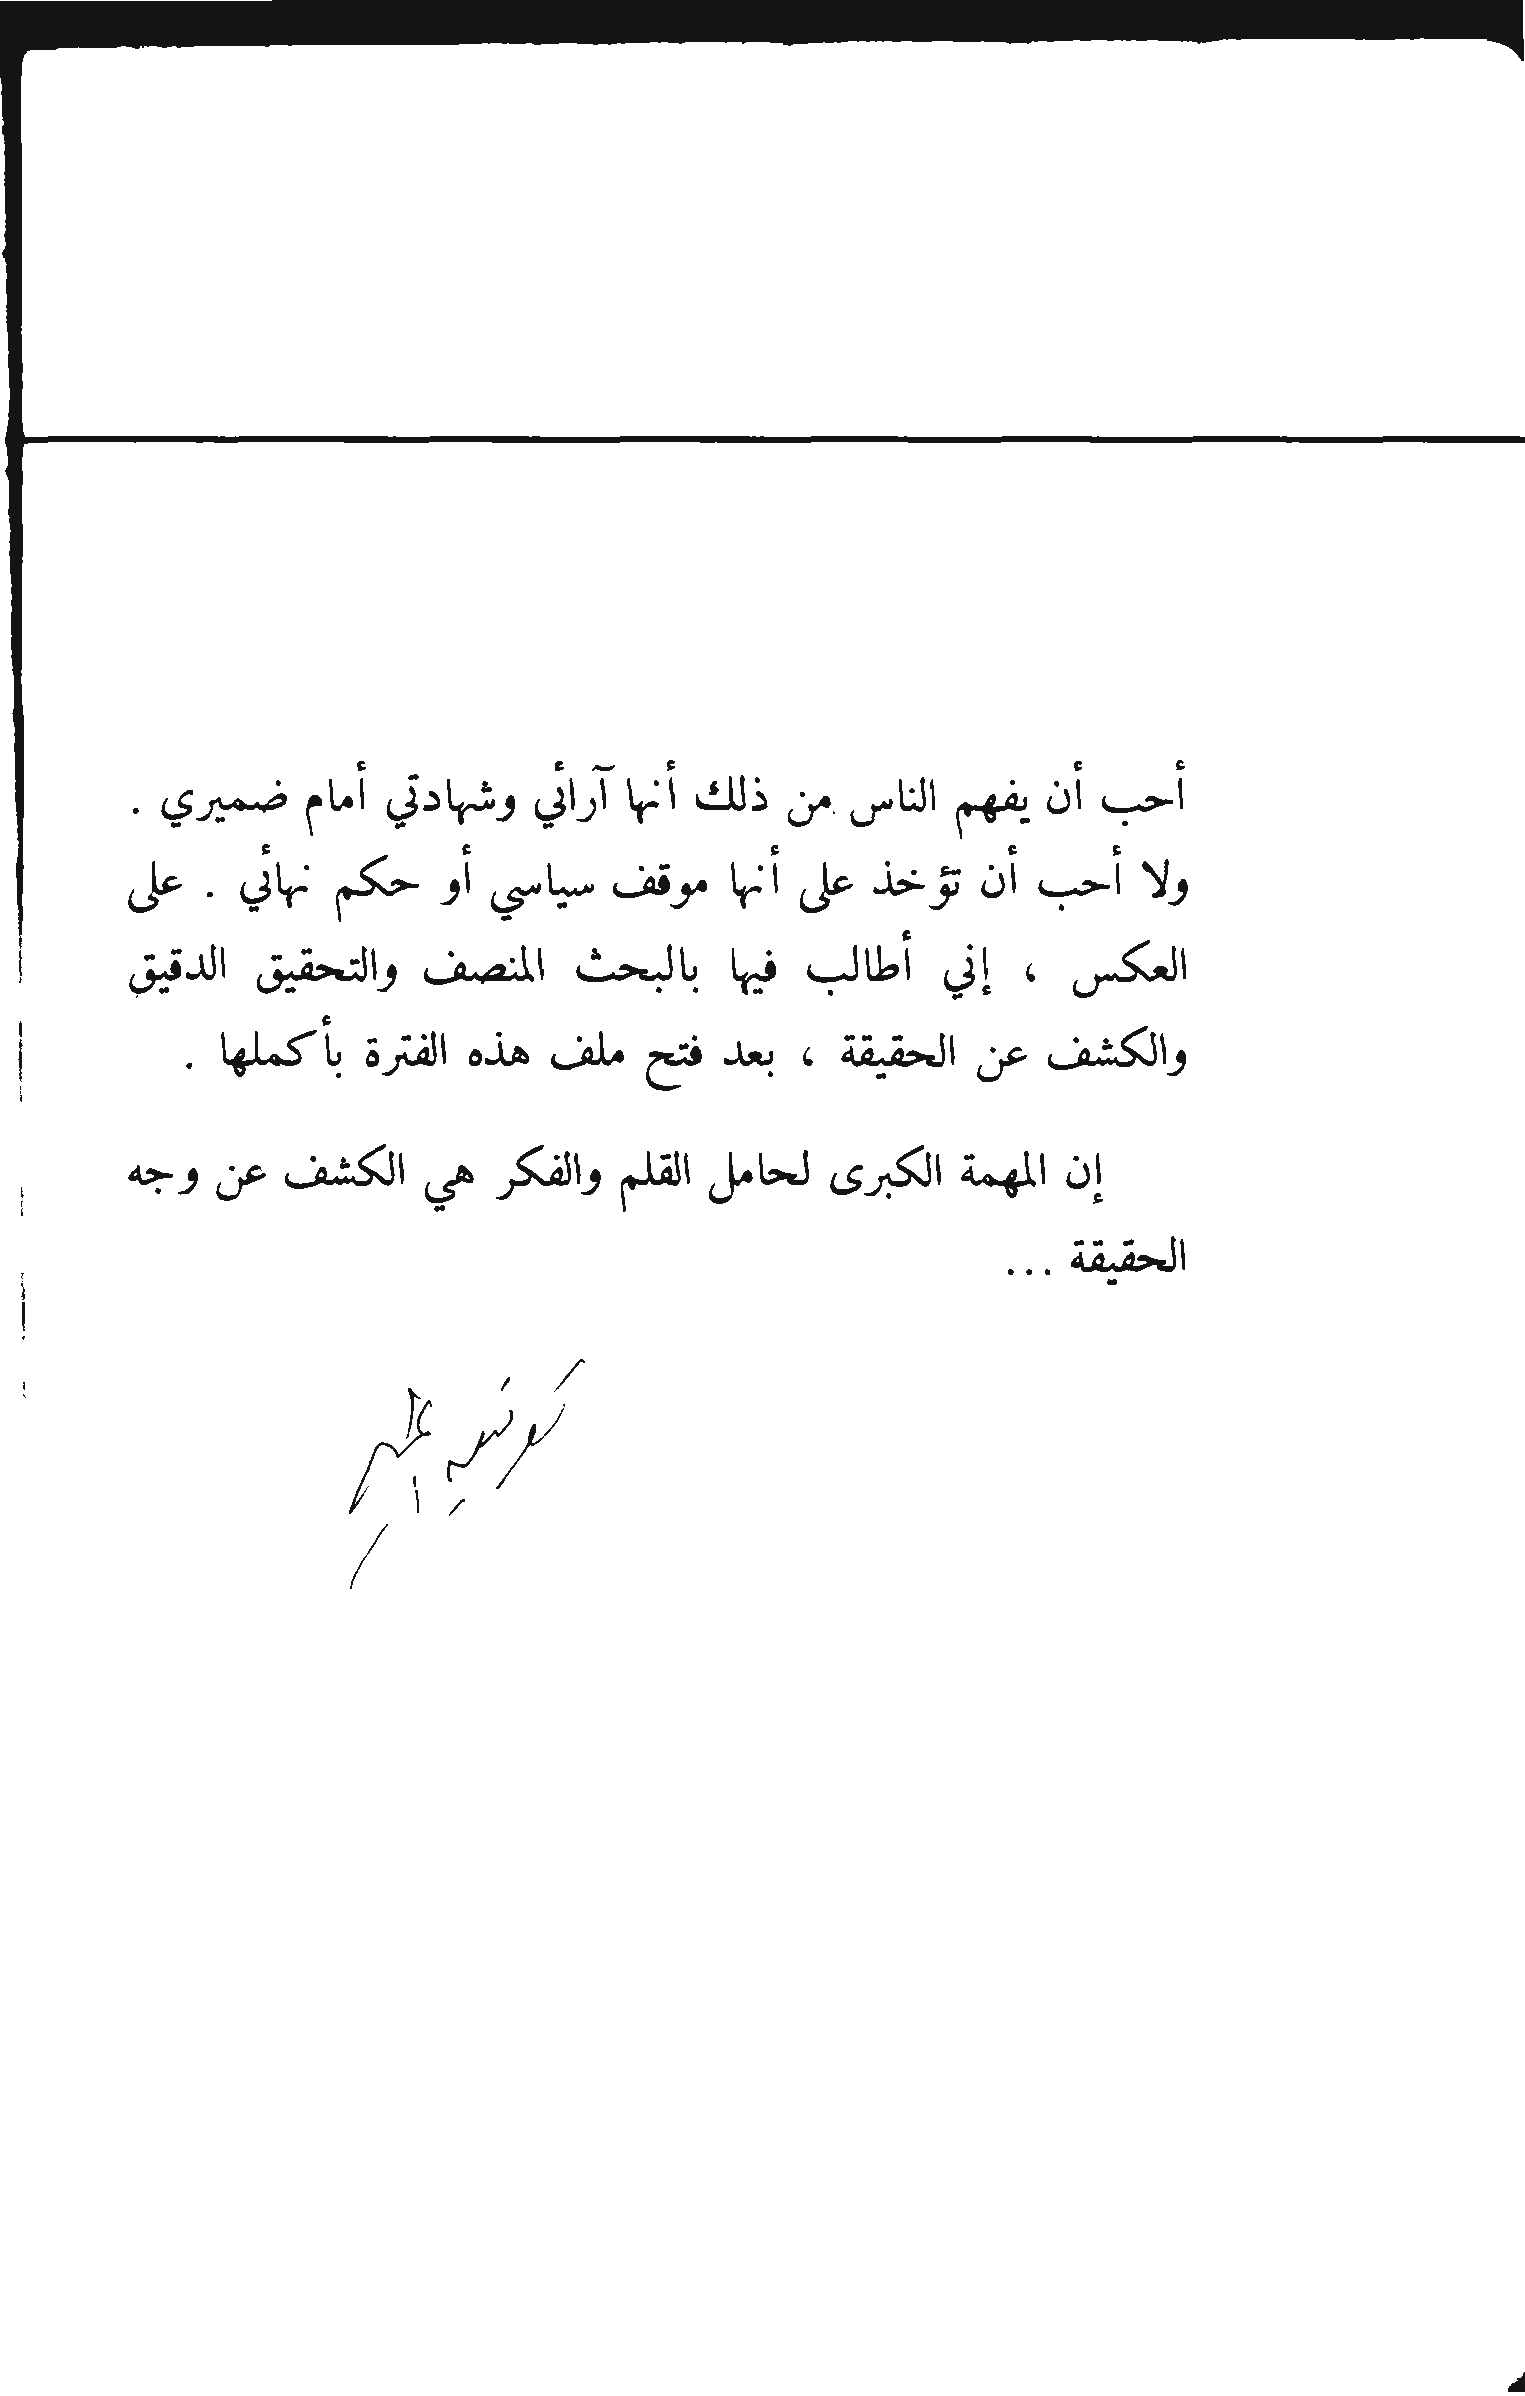 أحب أن يفهم الناس من ذلك أنها آرائي وشهادتي أمام ضميري .
ولا أحب أن تؤخذ على أنها موقف سياسي أو حكم نهائي . على
العكس ، إني أطالب فيها بالبحث المنصف والتحقيق الدقيق
والكشف عن الحقيقة ، بعد فتح ملف هذه الفترة بأكملها .
إن المهمة الكبرى لحامل القلم والفكر هي الكشف عن وجه
الحقيقة ...